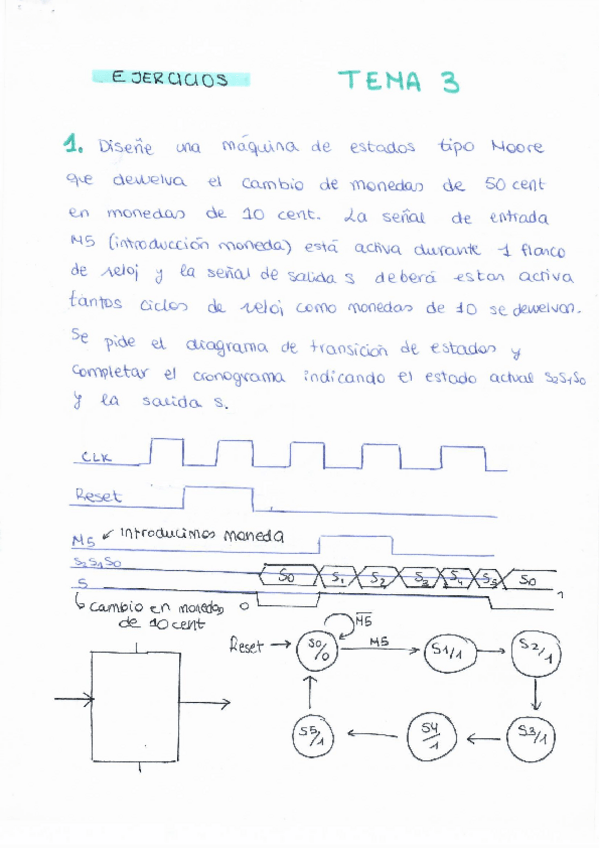 EJERCICIOS TEMA 3
1. Diseñe una máquina de estados tipo Moore
que devuelva el cambio de monedas de 50 cent
en monedas de 10 cent. La señal de entrada
M5 (introducción moneda) está activa durante 1 flanco
de reloj y la señal de salida s deberá estar activa
tantos ciclos de reloj como monedas de 10 se devuelvan.
Se pide el diagrama de transición de estados y
completar el cronograma indicando el estado actual S2S1S0
y la salida s.
CLK
Reset
M5 introducimos moneda
S2S1S0
S0 S1 S2 S3 S4 S5 S0
S
1
cambio en monedas 0
de 10 cent
M5
Reset S0/0 M5 S1/1 S2/1
S5/1 S4/1 S3/1